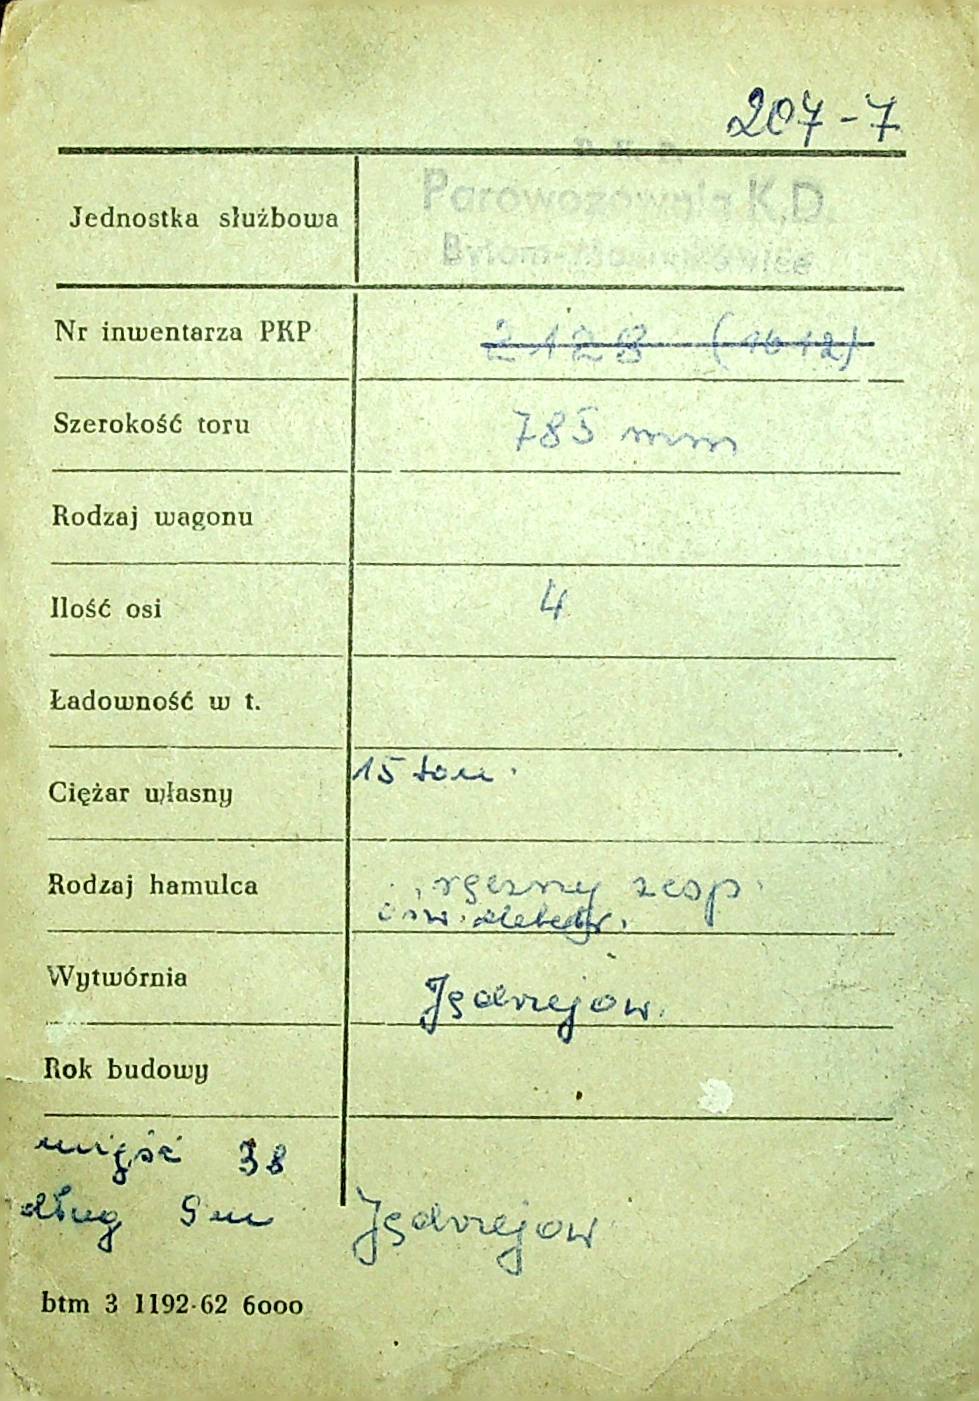 207-7
P. K. P.
Jednostka służbowa Parowozownia K.D.
Bytom-Karb
Nr inwentarza PKP 2128 (1612)
Szerokość toru 785 mm
Rodzaj wagonu
Ilość osi 4
Ładowność w t.
Ciężar własny 15 ton.
Rodzaj hamulca ręczny zesp.
ośw. elektr.
Wytwórnia Jędrzejow.
Rok budowy
miejść 38
dług 9 m Jędrzejow
btm 3 1192-62 6000